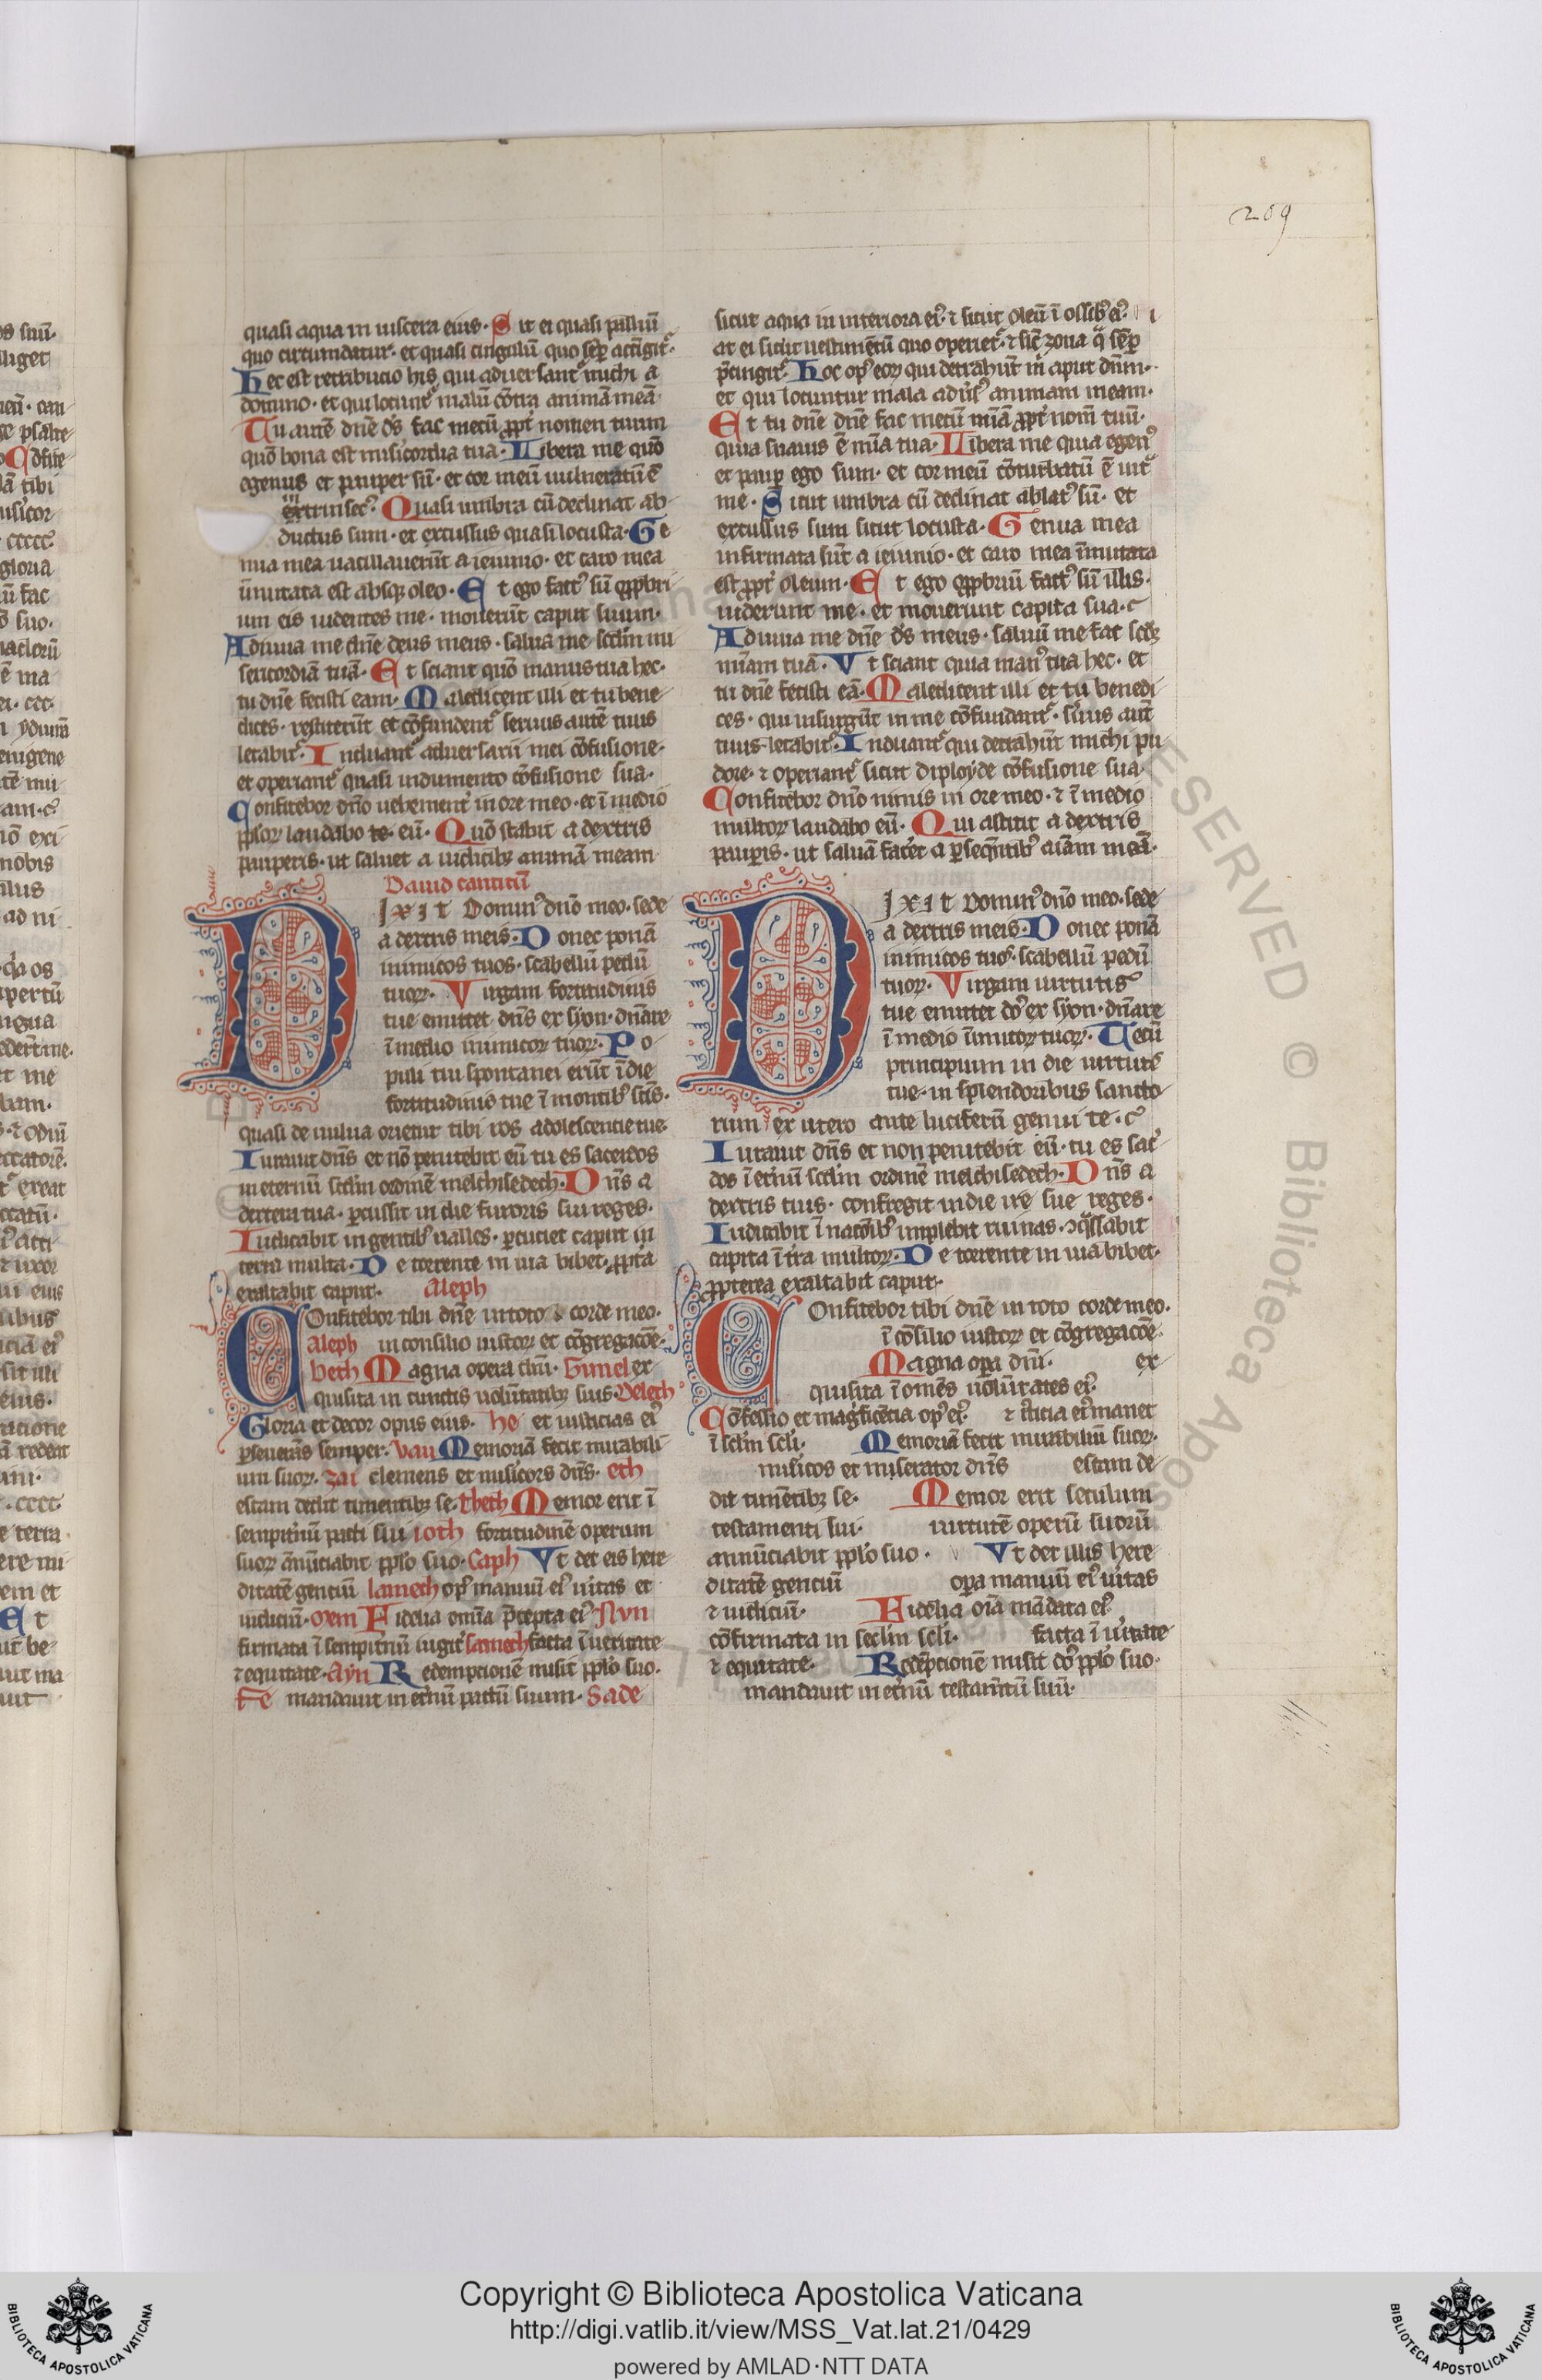 209
quasi aqua in uiscera eius. Sit ei quasi palliũ
quo circundatur. et quasi cingulũ quo sẽp accĩgit᷑.
Hec est retribucio his qui aduersant᷑ michi a
domino. et qui locunt᷑ malũ cõtra animã meã.
Tu autẽ dñe dẽs fac mecũ ꝓpt᷑ nomen tuum
quõ bona est mis̃icordia tua. Libera me quõ
egenus et pauper sũ. et cor meũ uulneratũ ẽ
extrinsec᷒. Quasi umbra cũ declinat ab
ductus sum. et excussus quasi locusta. Ge
nua mea uacillauerũt a ieiunio. et caro mea
ĩmutata est absqꝫ oleo. Et ego fact᷒ sũ oppbri
um eis uidentes me. mouerũt caput suum.
Adiuua me dñe deus meus. salua me scdm mi
sericordiã tuã. Et sciant quõ manus tua hec.
tu dñe fecisti eam. Maledicent illi et tu bene
dices. restiterũt et cõfundent᷑ seruus autẽ tuus
letabit᷑. Induant᷑ aduersarii mei cõfusione.
et operiant᷑ quasi indumento cõfusione sua.
Confitebor dño uehement᷑ in ore meo. et ĩ medio
pploꝝ laudabo te. eũ. Quõ stabit a dextris
pauperis. ut saluet a iudicibꝫ animã meam
Dauid canticũ
Dixit Domin᷒ dño meo. sede
a dextris meis. Donec ponã
inimicos tuos. scabellũ pedũ
tuoꝝ. Virgam fortitudinis
tue emittet dñs ex syon. dñare
ĩ medio inimicoꝝ tuoꝝ. Po
puli tui spontanei erũt ĩ die
fortitudinis tue ĩ montib᷒ scĩs.
quasi de uulua orietur tibi ros adolescentie tue
Iurauit dñs et nõ penitebit eũ tu es sacerdos
in eternũ scdm ordinẽ melchisedech. Dñs a
dextera tua. ꝑcussit in die furoris sui reges.
Iudicabit in gentib᷒ ualles. ꝑcutiet caput in
terra multa. De torrente in uia bibet. ꝓpt̃a
exaltabit caput. Aleph
Confitebor tibi dñe in toto corde meo.
Aleph in consilio iustoꝝ et cõgregacõe.
Beth Magna opera dñi. Gimel ex
quisita in cunctis uolũtatibꝫ suis. Deleth
Gloria et decor opus eius. he et iusticias ei᷒
ꝑseuerãs semper. Vau Memoriã fecit mirabili
um suoꝝ. Zai clemens et misicors dñs. eth
escam dedit timentibꝫ se. theth Memor erit ĩ
sempit̃nũ pacti sui ioth fortitudinẽ operum
suoꝝ ãnũciabit pplo suo. Caph Vt det eis here
ditatẽ gentiũ lamech op᷒ manuũ ei᷒ ũitas et
iudiciũ. mem Fidelia om̃ia p̃cepta ei᷒. Nvn
firmata ĩ sempit̃nũ iugit᷑ samech facta ĩ ueritate
⁊ equitate. Ayn Redempcionẽ misit pplo suo.
Fe mandauit in et̃nũ pactũ suum. Sade
sicut aqua in interiora ei᷒. ⁊ sicut oleũ ĩ ossib᷒ ei᷒.
at ei sicut uestimẽtũ quo operiet᷑. ⁊ sic̃ zona q̃ sẽp
p̃cingit᷑. Hoc op᷒ eoꝝ qui detrahũt m̃ aput dñm.
et qui locuntur mala adũs᷒ animam meam.
Et tu dñe dñe fac mecũ m̃iã ꝓpt᷑ nom̃ tuũ.
quia suauis ẽ m̃ia tua. Libera me quia egen᷒
et paup ego sum. et cor meũ cõturbatũ ẽ int᷑
me. Sicut umbra cũ declinat ablat᷒ sũ. et
excussus sum sicut locusta. Genua mea
infirmata sũt a ieiunio. et caro mea ĩmutata
est ꝓpt᷑ oleum. Et ego opprobriũ fact᷒ sũ illis.
uiderunt me. et mouerunt capita sua.
Adiuua me dñe dẽs meus. saluũ me fac scdꝫ
m̃iam tuã. Vt sciant quia man᷒ tua hec. et
tu dñe fecisti eã. Maledicent illi et tu benedi
ces. qui insurgũt in me cõfundant᷑. s̃uus aut̃
tuus letabit᷑. Induant᷑ qui detrahũt michi pu
dore. ⁊ operiant᷑ sicut diployde cõfusione sua.
Confitebor dño nimis in ore meo. ⁊ ĩ medio
multoꝝ laudabo eũ. Qui astitit a dextris
pauꝑis. ut saluã facẽt a ꝑseqñtib᷒ aĩam meã.
Dixit Domin᷒ dño meo. sede
a dextris meis. Donec ponã
inimicos tuos. scabellũ pedũ
tuoꝝ. Virgam uirtutis
tue emittet dõs ex syon. dñare
ĩ medio ĩimicoꝝ tuoꝝ. Tecũ
principium in die uirtutis
tue. in splendoribus sancto
rum ex utero ante luciferũ genui te.
Iurauit dñs et non penitebit eũ. tu es sac̃
dos ĩ et̃nũ scdm ordinẽ melchisedech. Dñs a
dextris tuis. confregit in die ire sue reges.
Iudicabit ĩ nacõib᷒ implebit ruinas. ɔq̃ssabit
capita ĩ t̃ra multoꝝ. De torrente in uia bibet.
ꝓpterea exaltabit caput.
Confitebor tibi dñe in toto corde meo.
ĩ cõsilio iustoꝝ et cõgregacõe.
Magna oꝑa dñi. ex
quisita ĩ omẽs uolũtates ei᷒.
Cõfessio et mag̃ficẽcia op᷒ ei᷒. ⁊ iusticia ei᷒ manet
ĩ sclm scli. Memoriã fecit mirabiliũ suoꝝ.
misicos et miserator dñs escam de
dit timẽtibꝫ se. Memor erit seculum
testamenti sui. uirtutẽ operũ suorũ
annũciabit pplo suo. Vt det illis here
ditatẽ gentiũ oꝑa manuũ ei᷒ ũitas
⁊ iudiciũ. Fidelia oĩa mãdata ei᷒
cõfirmata in seclm scli. facta ĩ ũitate
⁊ equitate. Redẽpcionẽ misit dõs pplo suo.
mandauit in et̃nũ testam̃tũ suũ.
Copyright © Biblioteca Apostolica Vaticana
http://digi.vatlib.it/view/MSS_Vat.lat.21/0429
powered by AMLAD·NTT DATA
BIBLIOTECA APOSTOLICA VATICANA
BIBLIOTECA APOSTOLICA VATICANA